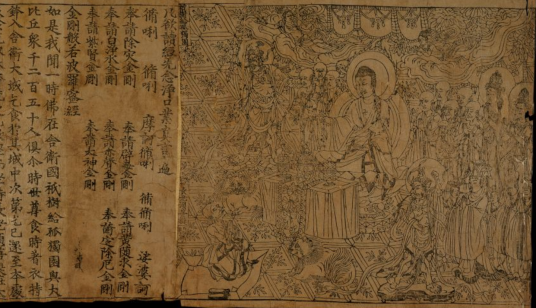 凡欲讀經先念淨口業真言一遍
脩唎 脩唎 摩訶脩唎 脩脩唎 娑婆訶
奉請除災金剛 奉請辟毒金剛 奉請黃隨求金剛
奉請白淨水金剛 奉請赤聲金剛 奉請定除厄金剛
奉請紫賢金剛 奉請大神金剛
金剛般若波羅蜜經
如是我聞一時佛在舍衛國祇樹給孤獨園與大
比丘衆千二百五十人俱尒時世尊食時著衣持
鉢入舍衛大城乞食於其城中次第乞已還至本處